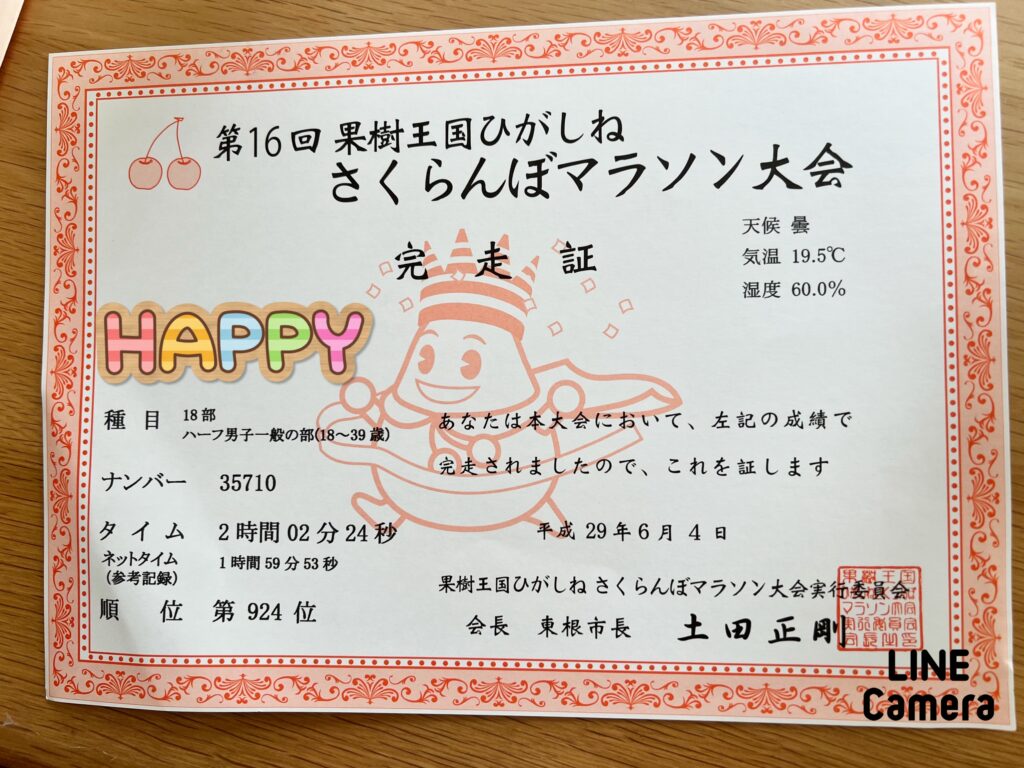 第16回 果樹王国ひがしね
さくらんぼマラソン大会
天候 曇
気温 19.5℃
湿度 60.0%
完走証
HAPPY
種目 18部
ハーフ男子一般の部(18～39歳)
ナンバー 35710
タイム 2時間02分24秒
ネットタイム
(参考記録) 1時間59分53秒
順位 第 924 位
あなたは本大会において、左記の成績で
完走されましたので、これを証します
平成 29年6月4日
果樹王国ひがしね さくらんぼマラソン大会実行委員会
会長 東根市長 土田正剛
LINE
Camera